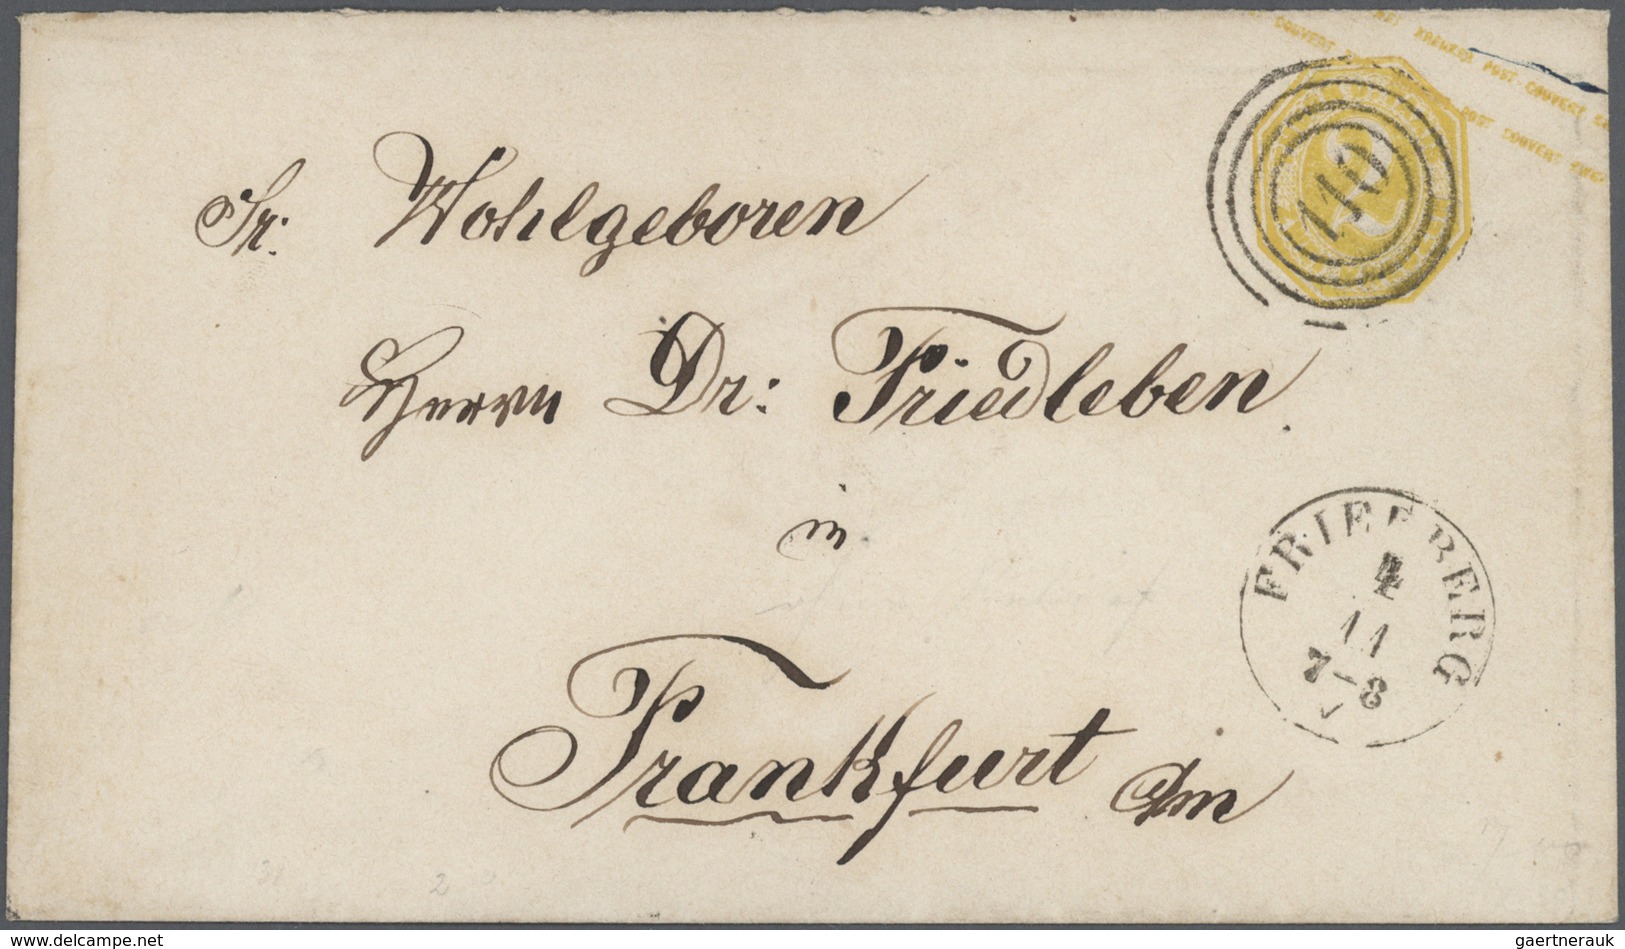 REI KREUZER POST-COUVERT
COUVERT
POST COUVERT ZWEI
2
110
Sr. Wohlgeboren
Herrn Dr: Friedleben
in
Frankfurt a/m
FRIEDBERG
4
11
7-8
delcampe.net
gaertnerauk